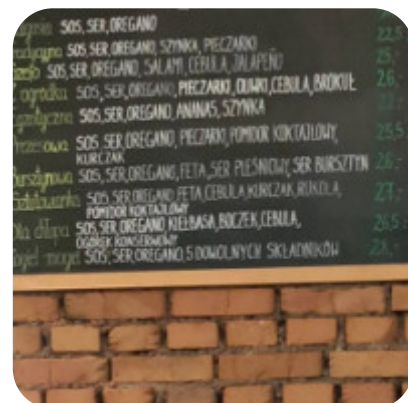 SOS, SER, OREGANO
SOS, SER, OREGANO, SZYNKA, PIECZARKI 22,5
SOS, SER, OREGANO, SALAMI, CEBULA, JALAPEÑO 25,-
ogródka SOS, SER, OREGANO, PIECZARKI, OLIWKI, CEBULA, BROKUŁ 26,-
SOS, SER, OREGANO, ANANAS, SZYNKA
SOS, SER, OREGANO, PIECZARKI, POMIDOR KOKTAJLOWY, 25,5
KURCZAK
Bursztynowa SOS, SER, OREGANO, FETA, SER PLEŚNIOWY, SER BURSZTYN 28,-
SOS, SER, OREGANO, FETA, CEBULA, KURCZAK, RUKOLA, 27,-
POMIDOR KOKTAJLOWY
Dla chłopa SOS, SER, OREGANO, KIEŁBASA, BOCZEK, CEBULA, 26,5
OGÓREK KONSERWOWY
mogel SOS, SER, OREGANO, 5 DOWOLNYCH SKŁADNIKÓW 28,-